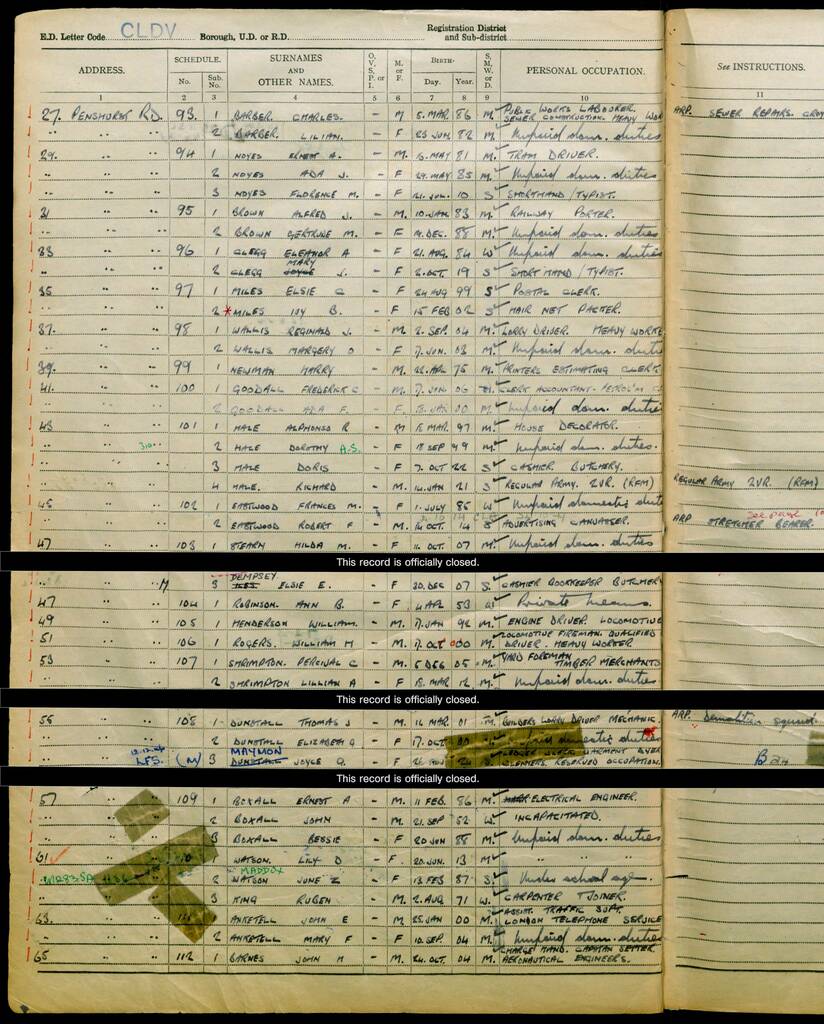 E.D. Letter Code CLDV Borough, U.D. or R.D. Registration District and Sub-district
ADDRESS. SCHEDULE. No. Sub. No. SURNAMES AND OTHER NAMES. O, V, S, P, or I M. or F. BIRTH- Day. Year. S, M, W, or D PERSONAL OCCUPATION. See INSTRUCTIONS.
1 2 3 4 5 6 7 8 9 10 11
27. PENSHURST RD. 93. 1 BARBER. CHARLES. - M 5. MAR. 86 M. PUBLIC WORKS LABOURER. SEWER CONSTRUCTION. HEAVY WOR ARP. SEWER REPAIRS. CROY
" " 2 BARBER. LILIAN. - F 23 JUN. 82 M. Unpaid dom. duties
29. " " 94 1 NOYES ERNEST A. - M. 15. MAY 81 M. TRAM DRIVER.
" " 2 NOYES ADA J. - F 29. MAY 85 M. Unpaid dom. duties
" " 3 NOYES FLORENCE M. - F 10 S SHORTHAND/TYPIST.
31 " " 95 1 BROWN ALFRED J. - M. 10 JAN 83 M. RAILWAY PORTER.
" " 2 BROWN GERTRUDE M. - F DEC. 88 M. Unpaid dom. duties
33 " " 96 1 CLEGG ELEANOR A - F 21. AUG. 84 W Unpaid dom. duties
" " 2 CLEGG JOYCE MARY J. - F 2. OCT. 19 S SHORTHAND/TYPIST.
35 " " 97 1 MILES ELSIE C - F 24 AUG 99 S POSTAL CLERK.
2 * MILES IVY B. - F 15 FEB 02 S HAIR NET PACKER.
37. " " 98 1 WALLIS REGINALD J. - M 2. SEP. 04 M. LORRY DRIVER. HEAVY WORKE
2 WALLIS MARGERY O - F 7. JUN. 03 M. Unpaid dom. dutie
39. " " 99 1 NEWMAN HARRY - M 22. APL 75 M. PRINTERS ESTIMATING CLERK
41. " " 100 1 GOODALL FREDERICK C - M. 7. JAN 06 M. CLERK ACCOUNTANT. PETROL'M
" " 2 GOODALL ADA F. - F. 15. JAN 00 M. Unpaid dom. dutie
43 " " 101 1 HALE ALPHONSO R - M 15 MAR. 97 M. HOUSE DECORATOR.
" " 2 HALE DOROTHY A.S. - F 18 SEP 99 M. Unpaid dom. duties.
" " 3 HALE DORIS - F 7. OCT 22 S CASHIER BUTCHERY.
" " 4 HALE. RICHARD - M. 14. JAN 21 S REGULAR ARMY. 2UR. (RFM) REGULAR ARMY 2UR. (RFM)
45 " " 102 1 EASTWOOD FRANCES M. - F 1. JULY 85 W Unpaid domestic duti see page
" " 2 EASTWOOD ROBERT F - M. 14 OCT. 14 S ADVERTISING CANVASSER. ARP STRETCHER BEARER.
47 " " 103 1 STEARN HILDA M. - F 11. OCT. 07 M. Unpaid dom. duties
This record is officially closed.
" " M 3 DEMPSEY ELSIE E. - F 20. DEC 07 S. CASHIER BOOKKEEPER BUTCHER
47 " " 104 1 ROBINSON. ANN B. - F 4 APL 53 W Private means.
49 " " 105 1 HENDERSON WILLIAM. - M. JAN 92 M. ENGINE DRIVER. LOCOMOTIVE
51 " " 106 1 ROGERS. WILLIAM H - M. 17. OCT 00 M. LOCOMOTIVE FIREMAN. QUALIFIED DRIVER. HEAVY WORKER
53 " " 107 1 SHRIMPTON. PERCIVAL C - M. 5 DEC 05 M. YARD FOREMAN TIMBER MERCHANTS
" " 2 SHRIMPTON LILLIAN A - F 15. MAR 12. M. Unpaid dom. duties
This record is officially closed.
55 " " 108 1 DUNSTALL THOMAS J - M. 14 MAR 01 M. BUILDERS LORRY DRIVER MECHANIC. ARP. Demolition squad.
" " 2 DUNSTALL ELIZABETH G - F 17. OCT 00 domestic duties
LFS. (M) 3 DUNSTALL MAYMON JOYCE G. - F LEDGER CLERK GARMENT DYER CLEANERS. RESERVED OCCUPATION.
This record is officially closed.
57 " " 109 1 BOXALL ERNEST A - M. 11 FEB. 86 M. ELECTRICAL ENGINEER.
2 BOXALL JOHN - M. 21. SEP 52 W. INCAPACITATED.
3 BOXALL BESSIE - F 20 JUN 88 M. Unpaid dom. duties
61 WATSON. LILY D - F. 20. JUN. 13 M " "
2 WATSON MADDOX JUNE Z - F 13 FEB S. Under school age
3 KING RUBEN - M. 2. AUG 71 W. CARPENTER & JOINER.
63. " " ANKETELL JOHN E - M 25. JAN 00 M. ASSIST. TRAFFIC SUPT. LONDON TELEPHONE SERVICE
" " 2 ANKETELL MARY F - F 10. SEP. 04 M. Unpaid dom. duties
65 " " 112 1 BARNES JOHN H - M. 24. OCT. 04 M. CHARGE HAND. CAPSTAN SETTER. AERONAUTICAL ENGINEERS.